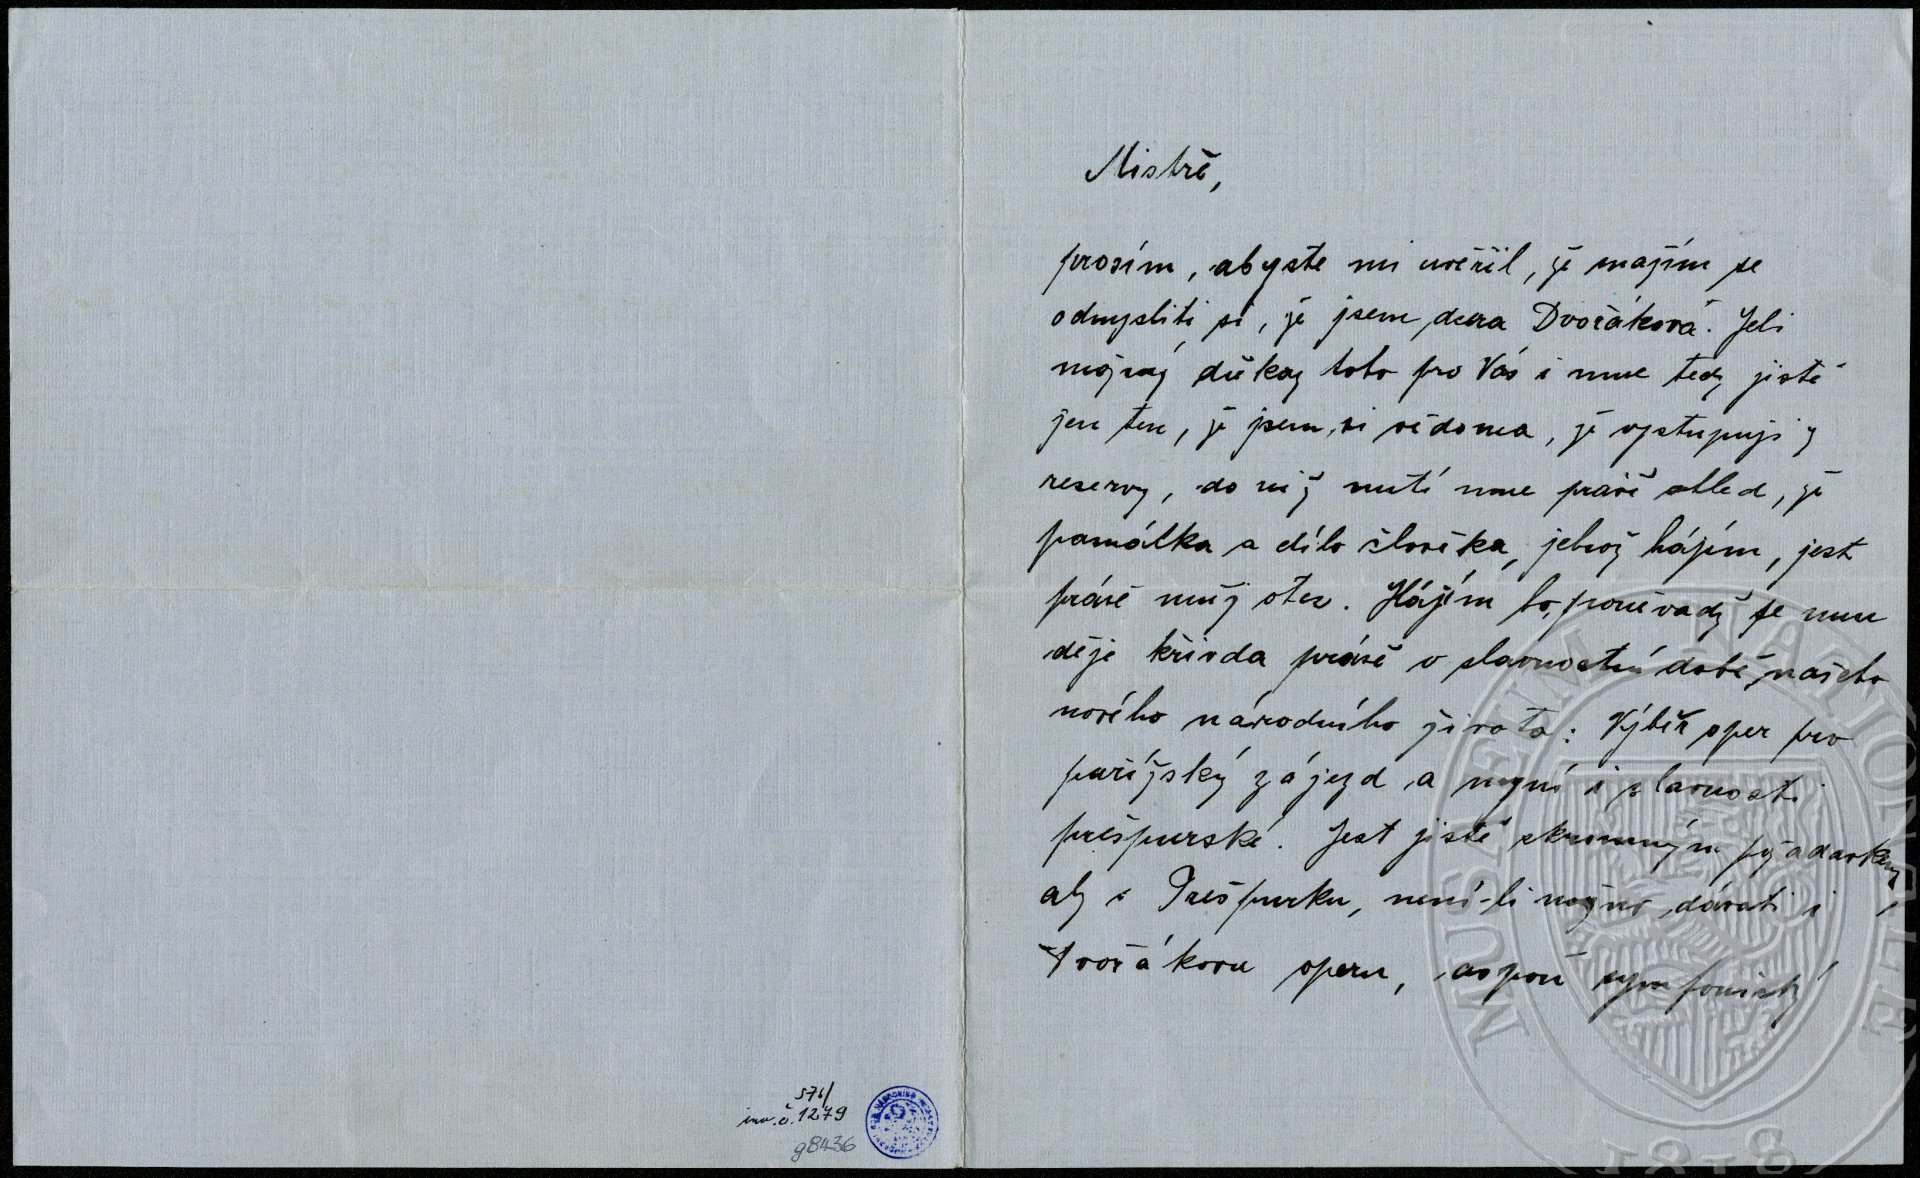 576/
inv. č. 1279
g8436
Mistře,
prosím, abyste mi uvěřil, že snažím se
odmysliti si, že jsem dcera Dvořákova. Jeli
možný důkaz toho pro Vás i mne tedy jistě
jen ten, že jsem si vědoma, že vystupuji z
reservy, do níž nutí mne právě ohled, že
památka a dílo člověka, jehož hájím, jest
právě můj otec. Hájím ho, poněvadž se mu
děje křivda právě v slavnostní době našeho
nového národního života: Výběr oper pro
pařížský zájezd a nyní i slavnosti
prešpurské. Jest jistě skromným požadavkem,
aby v Prešpurku, není-li možno dávati i
Dvořákovu operu, aspoň symfonický
MUSEUM NATIONALE
1818